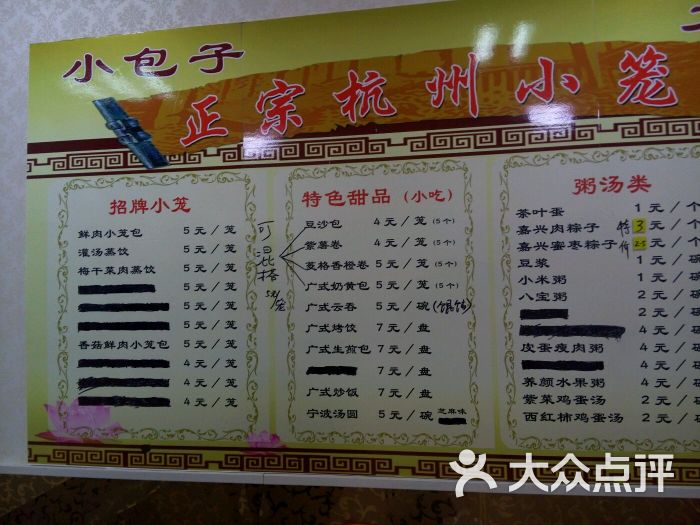 小包子
正宗杭州小笼
招牌小笼
鲜肉小笼包 5元/笼
灌汤蒸饺 5元/笼
梅干菜肉蒸饺 5元/笼
5元/笼
5元/笼
5元/笼
香菇鲜肉小笼包 5元/笼
4元/笼
4元/笼
4元/笼
可混搭 5元/笼
特色甜品(小吃)
豆沙包 4元/笼(5个)
紫薯卷 4元/笼(5个)
菱格香橙卷 5元/笼(5个)
广式奶黄包 5元/笼(5个)
广式云吞 5元/碗(馄饨)
广式烤饺 7元/盘
广式生煎包 7元/盘
7元/盘
广式炒饭 7元/盘
宁波汤圆 5元/碗 芝麻味
粥汤类
茶叶蛋 1元/个
嘉兴肉粽子 特价 3元/
嘉兴蜜枣粽子 2.5元/
豆浆 1元/
小米粥 1元/
八宝粥 2元/
2元/
4元/
皮蛋瘦肉粥 2元/
养颜水果粥 4元/
紫菜鸡蛋汤 2元/
西红柿鸡蛋汤 2元/
大众点评